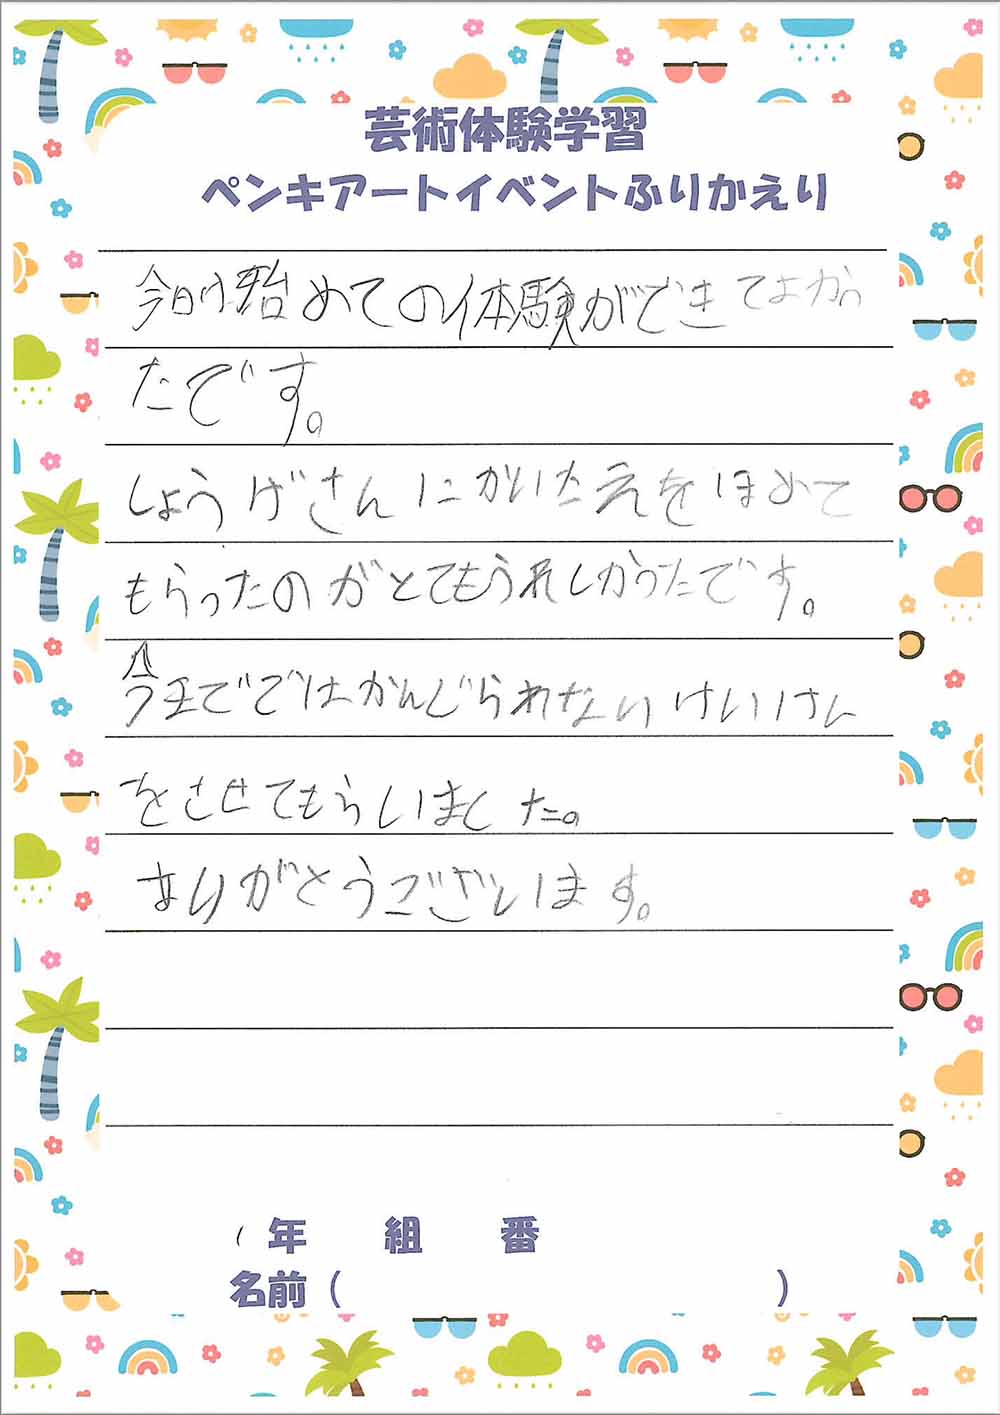 芸術体験学習
ペンキアートイベントふりかえり
今日は始めての体験ができてよかっ
たです。
しょうげさんにかいたえをほめて
もらったのがとてもうれしかったです。
今までではかんじられないけいけん
をさせてもらいました。
ありがとうございます。
1年 組 番
名前( )